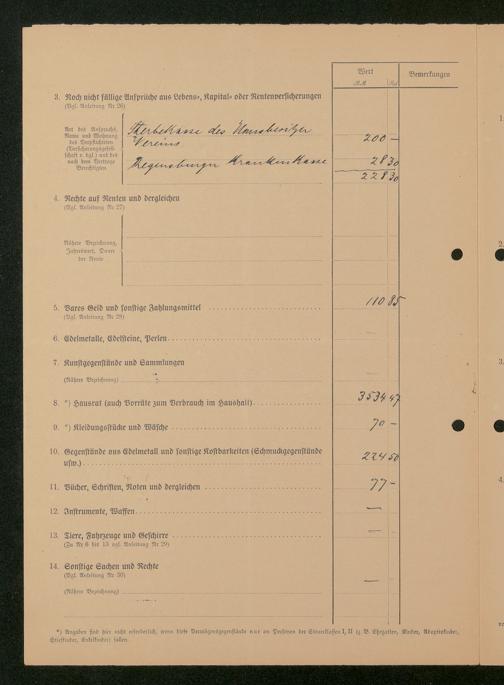 Wert
Bemerkungen
RM
Rpf
3. Noch nicht fällige Ansprüche aus Lebens-, Kapital- oder Rentenversicherungen
(Vgl. Anleitung Nr 26)
Art des Anspruchs,
Name und Wohnung
des Verpflichteten
(Versicherungsgesell-
schaft u. dgl.) und des
nach dem Vertrage
Berechtigten
Sterbekasse des Hausbesitzer
Vereins 200 —
Regensburger Krankenkasse 28 30
228 30
4. Rechte auf Renten und dergleichen
(Vgl. Anleitung Nr 27)
Nähere Bezeichnung,
Jahreswert, Dauer
der Rente
5. Bares Geld und sonstige Zahlungsmittel 110 85
(Vgl. Anleitung Nr 28)
6. Edelmetalle, Edelsteine, Perlen —
7. Kunstgegenstände und Sammlungen
(Nähere Bezeichnung) —
8. *) Hausrat (auch Vorräte zum Verbrauch im Haushalt) 3534 47
9. *) Kleidungsstücke und Wäsche 70 —
10. Gegenstände aus Edelmetall und sonstige Kostbarkeiten (Schmuckgegenstände
usw.) 224 50
11. Bücher, Schriften, Noten und dergleichen 77 —
12. Instrumente, Waffen —
13. Tiere, Fahrzeuge und Geschirre —
(Zu Nr 6 bis 13 vgl. Anleitung Nr 29)
14. Sonstige Sachen und Rechte
(Vgl. Anleitung Nr 30) —
(Nähere Bezeichnung)
*) Angaben sind hier nicht erforderlich, wenn diese Vermögensgegenstände nur an Personen der Steuerklassen I, II (z. B. Ehegatten, Kinder, Adoptivkinder,
Stiefkinder, Enkelkinder) fallen.
1.
2.
3.
4.